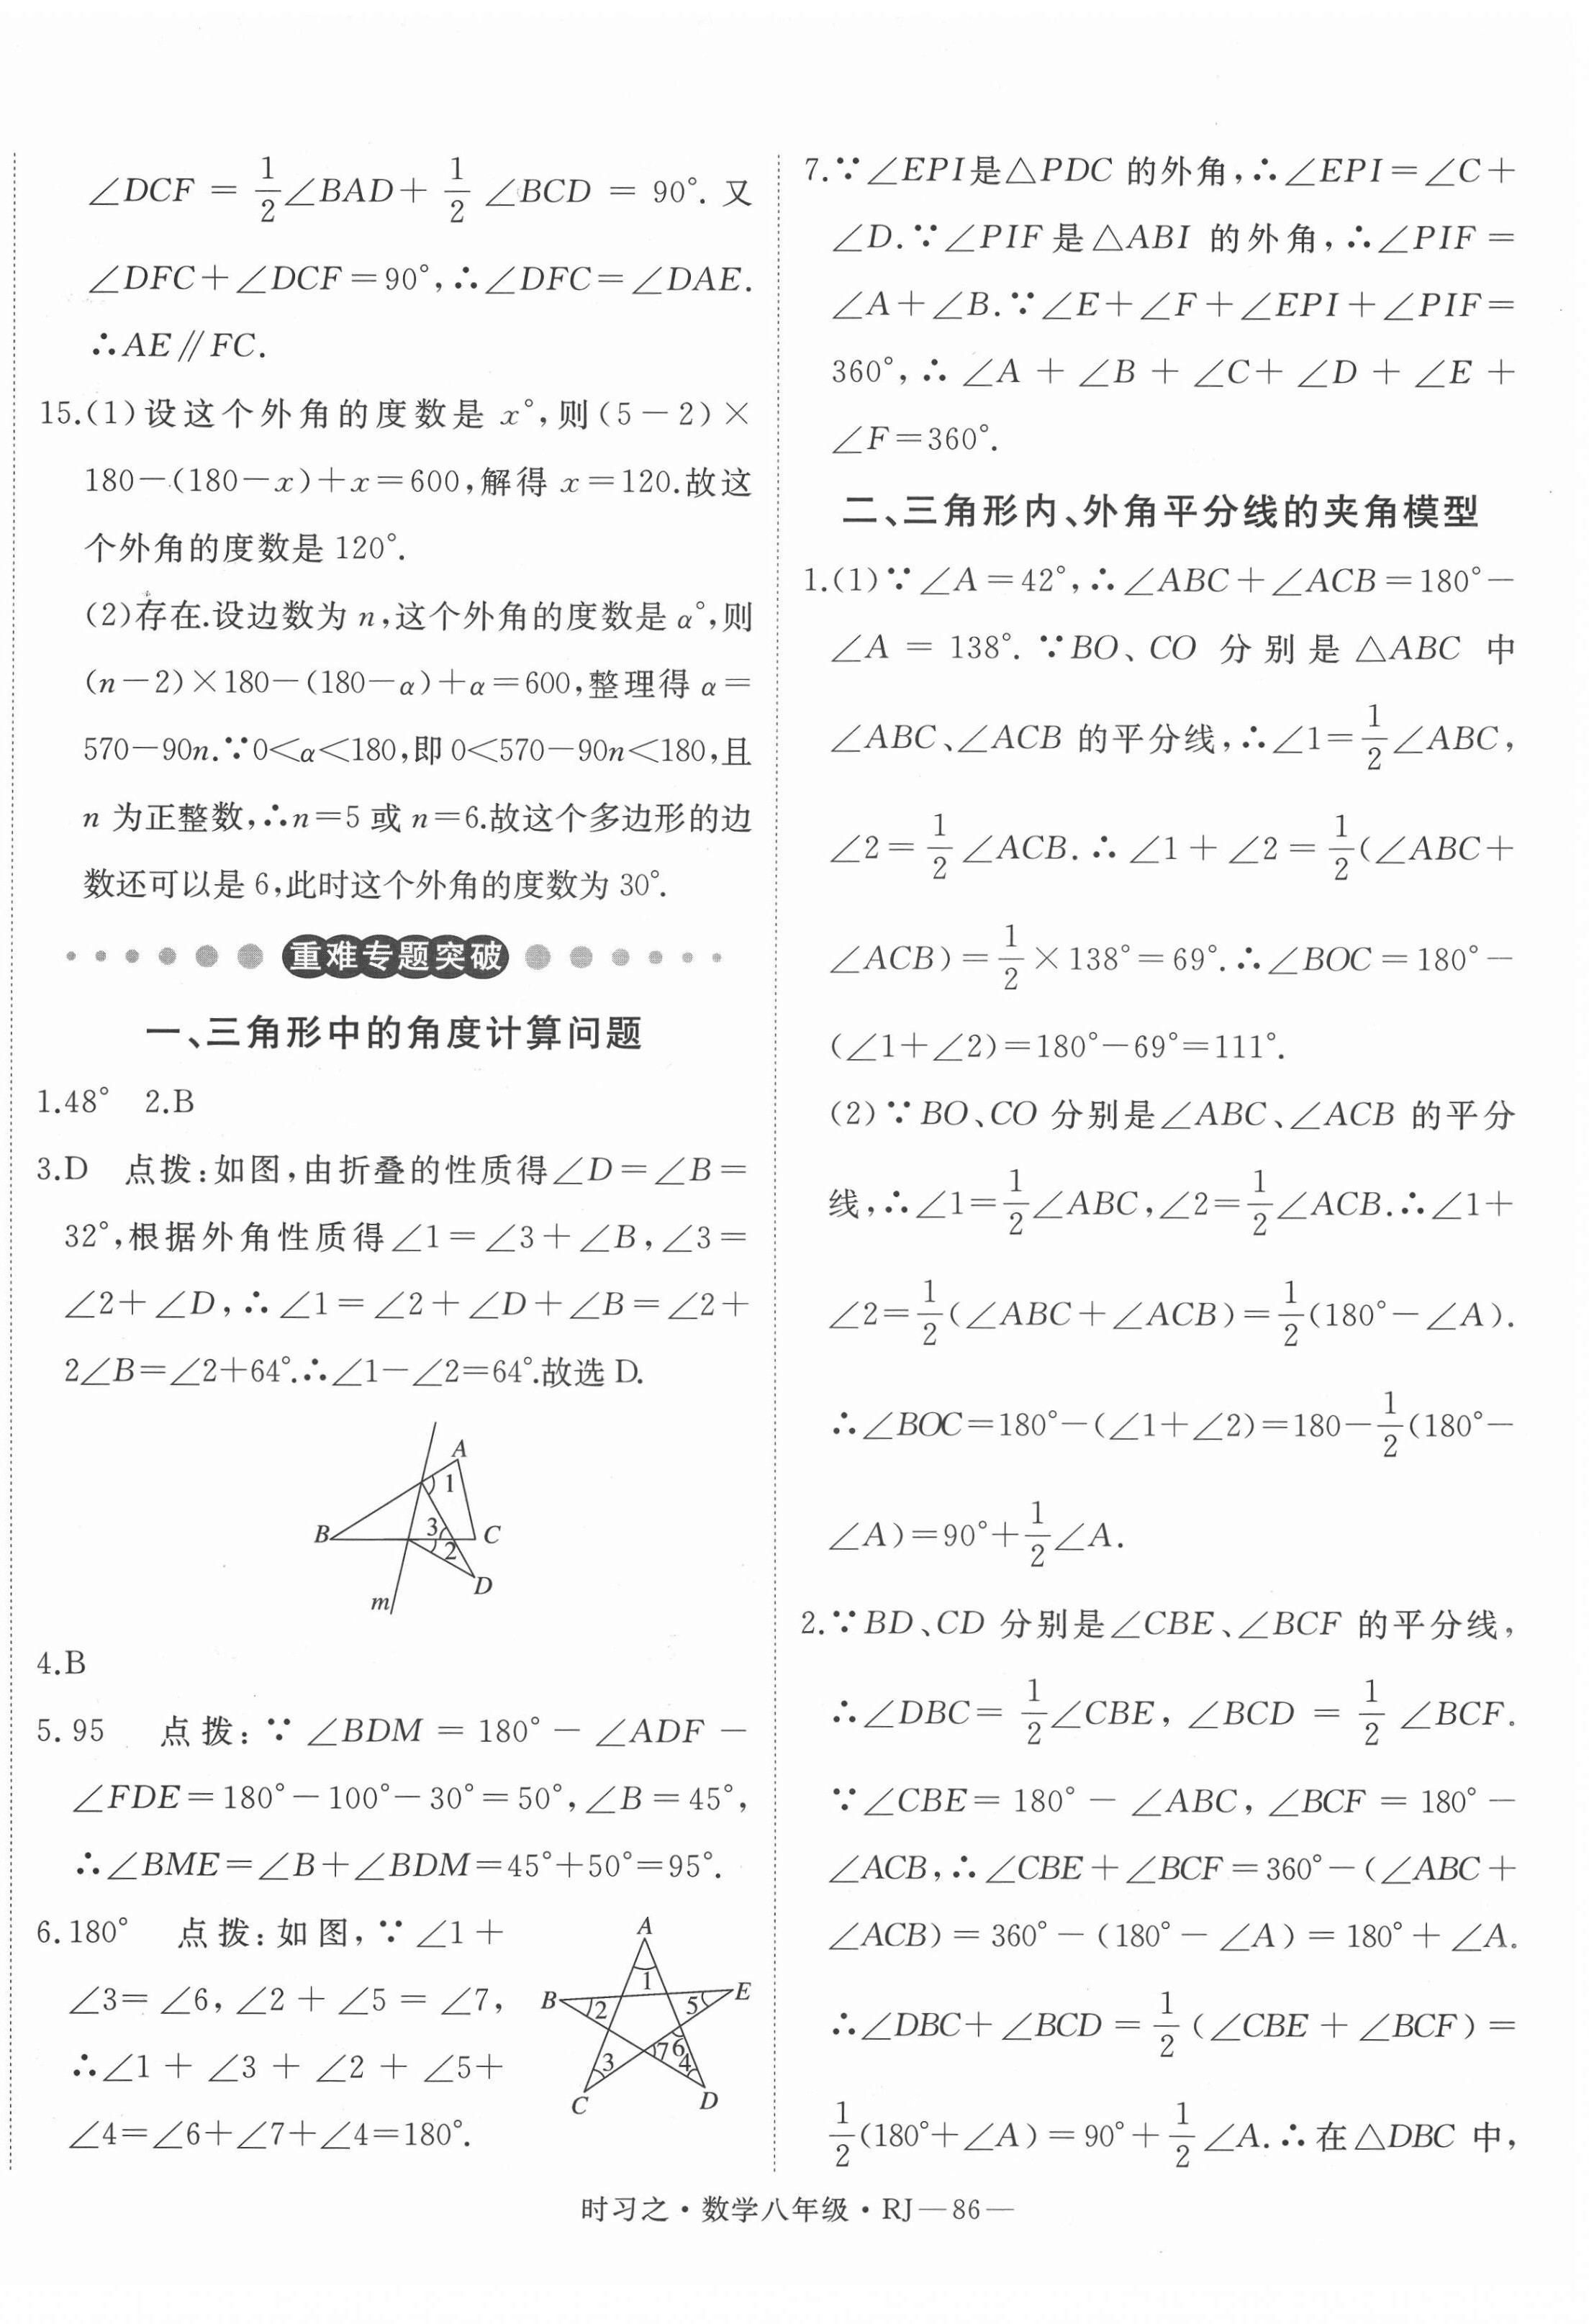 ∠DCF = 1/2∠BAD+ 1/2 ∠BCD = 90°. 又
∠DFC+∠DCF=90°,∴∠DFC=∠DAE.
∴AE∥FC.
15.(1)设这个外角的度数是 x°,则(5-2)×
180-(180-x)+x=600,解得 x=120.故这
个外角的度数是 120°.
(2)存在.设边数为 n,这个外角的度数是 α°,则
(n-2)×180-(180-α)+α=600,整理得 α=
570-90n.∵0<α<180,即 0<570-90n<180,且
n 为正整数,∴n=5 或 n=6.故这个多边形的边
数还可以是 6,此时这个外角的度数为 30°.
重难专题突破
一、三角形中的角度计算问题
1.48° 2.B
3.D 点拨:如图,由折叠的性质得∠D=∠B=
32°,根据外角性质得∠1=∠3+∠B,∠3=
∠2+∠D,∴∠1=∠2+∠D+∠B=∠2+
2∠B=∠2+64°.∴∠1-∠2=64°.故选 D.
A
1
B
3
C
2
D
m
4.B
5.95 点拨:∵∠BDM=180°-∠ADF-
∠FDE=180°-100°-30°=50°,∠B=45°,
∴∠BME=∠B+∠BDM=45°+50°=95°.
6.180° 点拨:如图,∵∠1+
∠3=∠6,∠2+∠5=∠7,
∴∠1+∠3+∠2+∠5+
∠4=∠6+∠7+∠4=180°.
A
1
B
2
5
E
7
6
3
4
C
D
7.∵∠EPI是△PDC 的外角,∴∠EPI=∠C+
∠D.∵∠PIF是△ABI 的外角,∴∠PIF=
∠A+∠B.∵∠E+∠F+∠EPI+∠PIF=
360°,∴∠A+∠B+∠C+∠D+∠E+
∠F=360°.
二、三角形内、外角平分线的夹角模型
1.(1)∵∠A=42°,∴∠ABC+∠ACB=180°-
∠A=138°.∵BO、CO 分别是△ABC 中
∠ABC、∠ACB 的平分线,∴∠1=1/2∠ABC,
∠2=1/2∠ACB.∴∠1+∠2=1/2(∠ABC+
∠ACB)=1/2×138°=69°.∴∠BOC=180°-
(∠1+∠2)=180°-69°=111°.
(2)∵BO、CO 分别是∠ABC、∠ACB 的平分
线,∴∠1=1/2∠ABC,∠2=1/2∠ACB.∴∠1+
∠2=1/2(∠ABC+∠ACB)=1/2(180°-∠A).
∴∠BOC=180°-(∠1+∠2)=180-1/2(180°-
∠A)=90°+1/2∠A.
2.∵BD、CD 分别是∠CBE、∠BCF 的平分线,
∴∠DBC=1/2∠CBE,∠BCD=1/2∠BCF.
∵∠CBE=180°-∠ABC,∠BCF=180°-
∠ACB,∴∠CBE+∠BCF=360°-(∠ABC+
∠ACB)=360°-(180°-∠A)=180°+∠A.
∴∠DBC+∠BCD=1/2(∠CBE+∠BCF)=
1/2(180°+∠A)=90°+1/2∠A.∴在△DBC 中,
时习之·数学八年级·RJ—86—